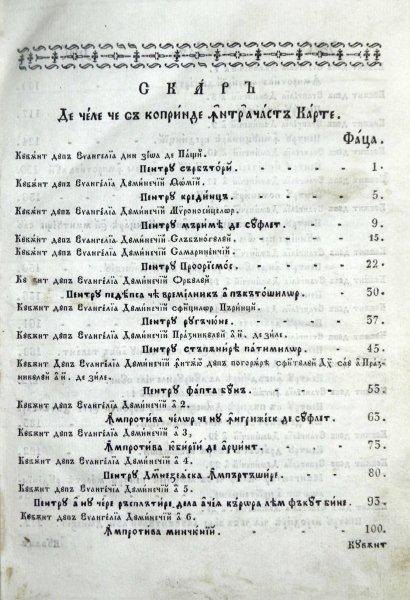 СКА́РЪ
Де че́ле че съ копри́нде ꙟ҆нтрꙋ҆ача́стъ Ка́рте.
Фа́ца.
Кꙋвѫ́нт дꙋпъ Єѵангелїа дин зїѡа де Па́щи.
Пентрꙋ сърбъто́рй. 1.
Кꙋвѫ́нт дꙋпъ Єѵангелїа Дꙋминечїй Ѳѡмїй.
Пентрꙋ креди́нцъ. 5.
Кꙋвѫ́нт дꙋпъ Єѵангелїа Дꙋминечїй Мѵроносицелѡр.
Пентрꙋ мъри́ме де сꙋ́флет. 9.
Кꙋвѫ́нт дꙋпъ Єѵангелїа Дꙋминечїй Слъбъногꙋлꙋй. 15.
Кꙋвѫ́нт дꙋпъ Єѵангелїа Дꙋминечїй Самаринѣнчїй
Пентрꙋ Проѳресмо́с. 22.
Кꙋвѫ́нт дꙋпъ Єѵангелїа Дꙋминечїй Орбꙋлꙋй
Пентрꙋ педѣ́пса чѣ времѣ́лникъ а пъкъто́шилѡр. 30.
Кꙋвѫ́нт дꙋпъ Єѵангелїа Дꙋминечїй сфи́нцилѡр Пъри́нцй.
Пентрꙋ рꙋгъчю́не. 37.
Кꙋвѫ́нт дꙋпъ Єѵангелїа Пра́зникꙋлꙋй а н҃. де зи́ле.
Пентрꙋ стъпѫни́ре па́тимилѡр. 45.
Кꙋвѫ́нт дꙋпъ Єѵангелїа Дꙋминечїй ꙟ҆нтѫю дꙋпъ погорѫ́рѣ сфи́нтꙋлꙋй Дꙋ҃х саꙋ а Пра́з-
никꙋлꙋй а н҃. де зи́ле.
Пентрꙋ фа́пта бꙋ́нъ. 55.
Кꙋвѫ́нт дꙋпъ Єѵангелїа Дꙋминечїй а҆ 2.
Ꙟ҆мпротива че́лѡр че нꙋ ꙟ҆нгрижéск де сꙋ́флет. 63.
Кꙋвѫ́нт дꙋпъ Єѵангелїа Дꙋминечїй а҆ 3,
Ꙟ҆мпротива юби́рїй де арџи́нт. 73.
Кꙋвѫ́нт дꙋпъ Єѵангелїа Дꙋминечїй а҆ 4.
Пентрꙋ Дꙋмнезеѧ́ска ꙟ҆мпъртъши́ре. 80.
Кꙋвѫ́нт дꙋпъ Єѵангелїа Дꙋминечїй а҆ 5.
Пентрꙋ а҆ нꙋ че́ре ръсплъти́ре, дела ачеѧ кꙋ́рѡра лѣм фъкꙋт би́не. 93.
Кꙋвѫ́нт дꙋпъ Єѵангелїа Дꙋминечїй а҆ 6.
Ꙟ҆мпротива минчю́нїй. 100.
Кꙋвѫ́нт